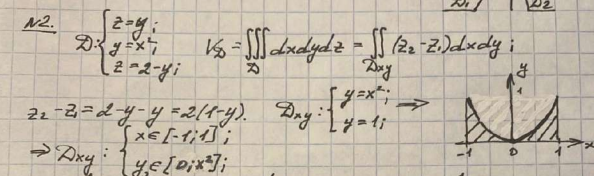 №2.
D: { z=y; y=x²; z=2-y; V_D = ∭_D dxdydz = ∬_Dxy (z₂-z₁)dxdy;
z₂-z₁=2-y-y=2(1-y). Dxy: { y=x²; y=1; →
⇒ Dxy: { x∈[-1;1]; y∈[0;x²];
y
1
-1 0 1 x